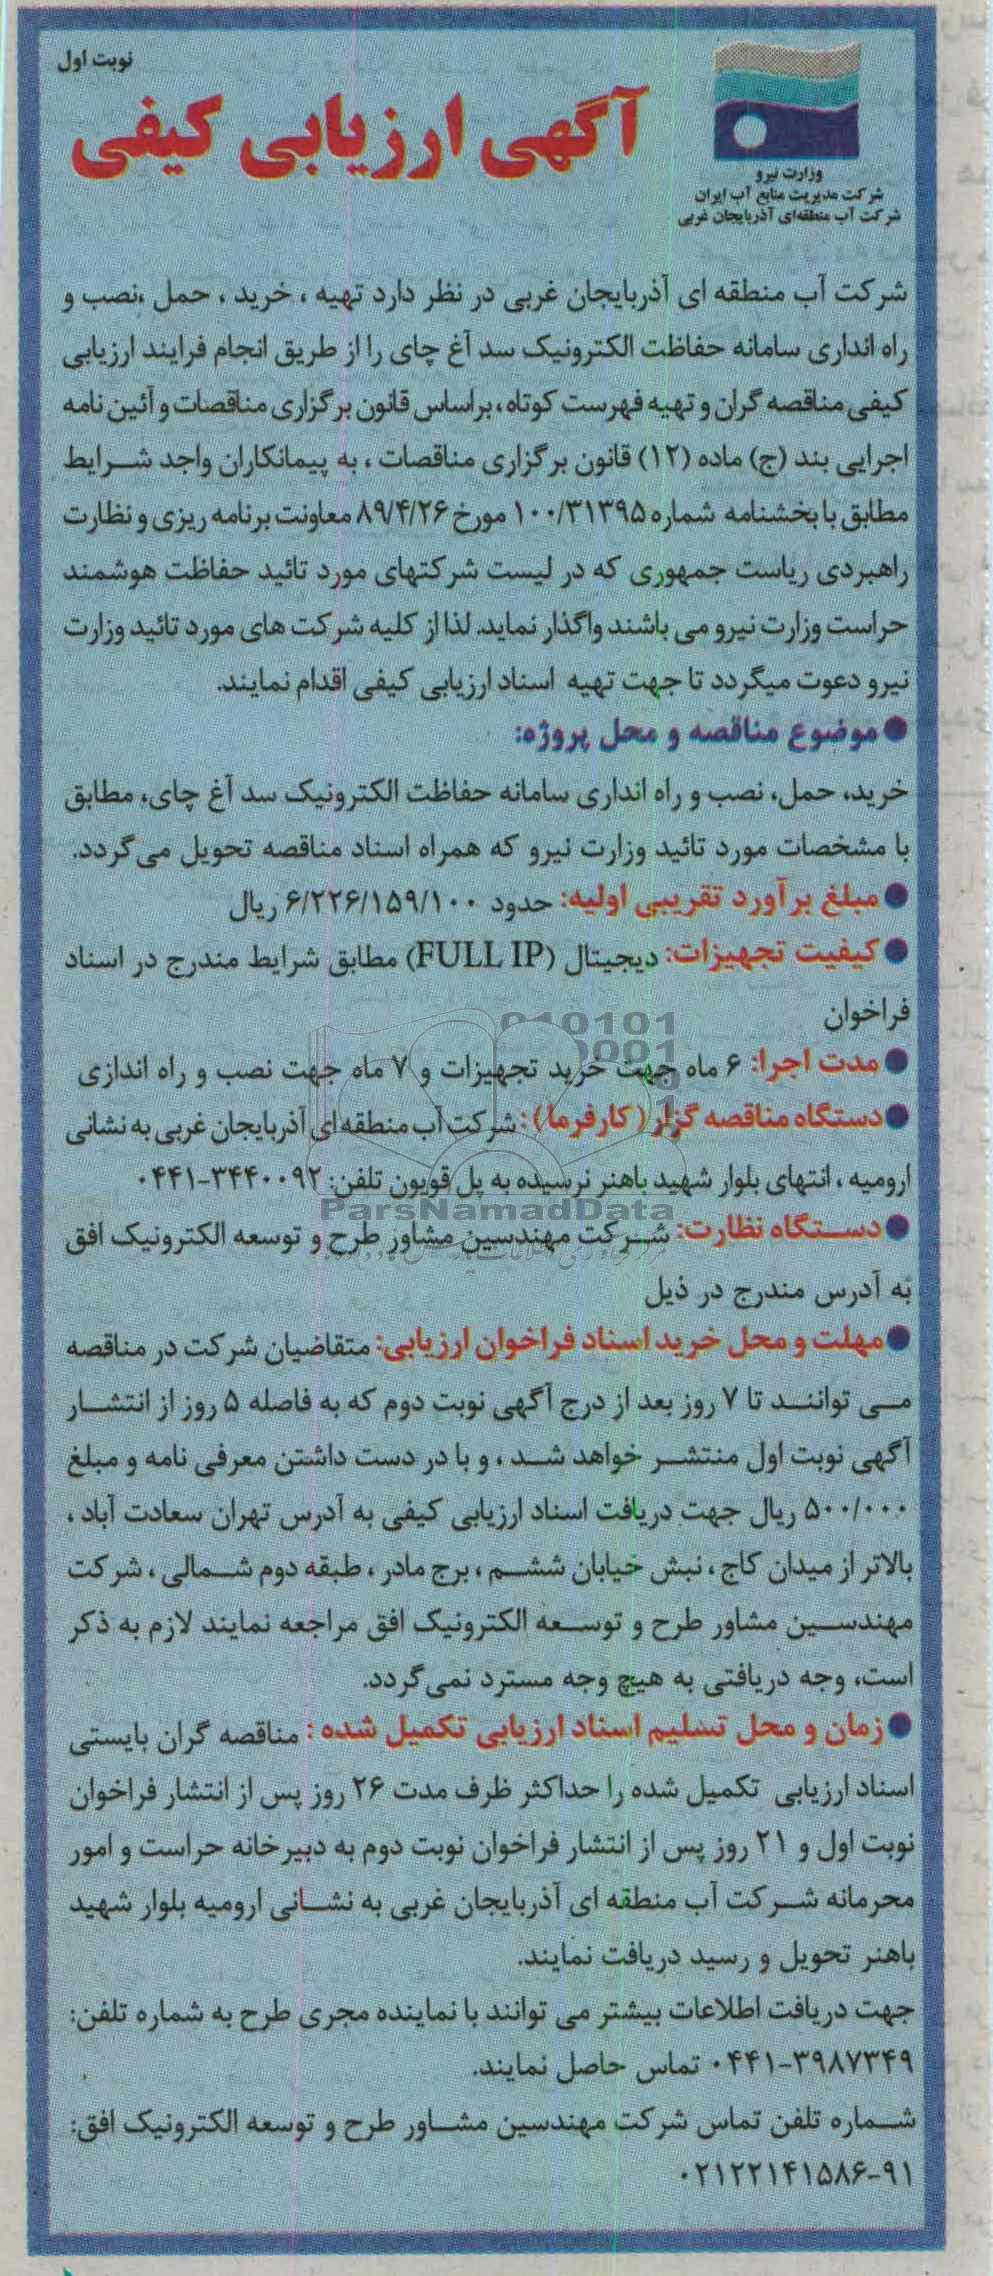 نوبت اول
آگهی ارزیابی کیفی
وزارت نیرو
شرکت مدیریت منابع آب ایران
شرکت آب منطقه‌ای آذربایجان غربی
شرکت آب منطقه ای آذربایجان غربی در نظر دارد تهیه ، خرید ، حمل ،نصب و
راه انداری سامانه حفاظت الکترونیک سد آغ چای را از طریق انجام فرایند ارزیابی
کیفی مناقصه گران و تهیه فهرست کوتاه ، براساس قانون برگزاری مناقصات و آئین نامه
اجرایی بند (ج) ماده (۱۲) قانون برگزاری مناقصات ، به پیمانکاران واجد شرایط
مطابق با بخشنامه شماره ۱۰۰/۳۱۳۹۵ مورخ ۸۹/۴/۲۶ معاونت برنامه ریزی و نظارت
راهبردی ریاست جمهوری که در لیست شرکتهای مورد تائید حفاظت هوشمند
حراست وزارت نیرو می باشند واگذار نماید. لذا از کلیه شرکت های مورد تائید وزارت
نیرو دعوت میگردد تا جهت تهیه اسناد ارزیابی کیفی اقدام نمایند.
● موضوع مناقصه و محل پروژه:
خرید، حمل، نصب و راه انداری سامانه حفاظت الکترونیک سد آغ چای، مطابق
با مشخصات مورد تائید وزارت نیرو که همراه اسناد مناقصه تحویل می‌گردد.
● مبلغ برآورد تقریبی اولیه: حدود ۶/۲۲۶/۱۵۹/۱۰۰ ریال
● کیفیت تجهیزات: دیجیتال (FULL IP) مطابق شرایط مندرج در اسناد
فراخوان
● مدت اجرا: ۶ ماه جهت خرید تجهیزات و ۷ ماه جهت نصب و راه اندازی
● دستگاه مناقصه گزار (کارفرما): شرکت آب منطقه ای آذربایجان غربی به نشانی
ارومیه ، انتهای بلوار شهید باهنر نرسیده به پل قویون تلفن: ۳۴۴۰۰۹۲-۰۴۴۱
● دستگاه نظارت: شرکت مهندسین مشاور طرح و توسعه الکترونیک افق
به آدرس مندرج در ذیل
● مهلت و محل خرید اسناد فراخوان ارزیابی: متقاضیان شرکت در مناقصه
می توانند تا ۷ روز بعد از درج آگهی نوبت دوم که به فاصله ۵ روز از انتشار
آگهی نوبت اول منتشر خواهد شد ، و با در دست داشتن معرفی نامه و مبلغ
۵۰۰/۰۰۰ ریال جهت دریافت اسناد ارزیابی کیفی به آدرس تهران سعادت آباد ،
بالاتر از میدان کاج ، نبش خیابان ششم ، برج مادر ، طبقه دوم شمالی ، شرکت
مهندسین مشاور طرح و توسعه الکترونیک افق مراجعه نمایند لازم به ذکر
است، وجه دریافتی به هیچ وجه مسترد نمی‌گردد.
● زمان و محل تسلیم اسناد ارزیابی تکمیل شده : مناقصه گران بایستی
اسناد ارزیابی تکمیل شده را حداکثر ظرف مدت ۲۶ روز پس از انتشار فراخوان
نوبت اول و ۲۱ روز پس از انتشار فراخوان نوبت دوم به دبیرخانه حراست و امور
محرمانه شرکت آب منطقه ای آذربایجان غربی به نشانی ارومیه بلوار شهید
باهنر تحویل و رسید دریافت نمایند.
جهت دریافت اطلاعات بیشتر می توانند با نماینده مجری طرح به شماره تلفن:
۳۹۸۷۳۴۹-۰۴۴۱ تماس حاصل نمایند.
شماره تلفن تماس شرکت مهندسین مشاور طرح و توسعه الکترونیک افق:
۰۲۱۲۲۱۴۱۵۸۶-۹۱
ParsNamadData